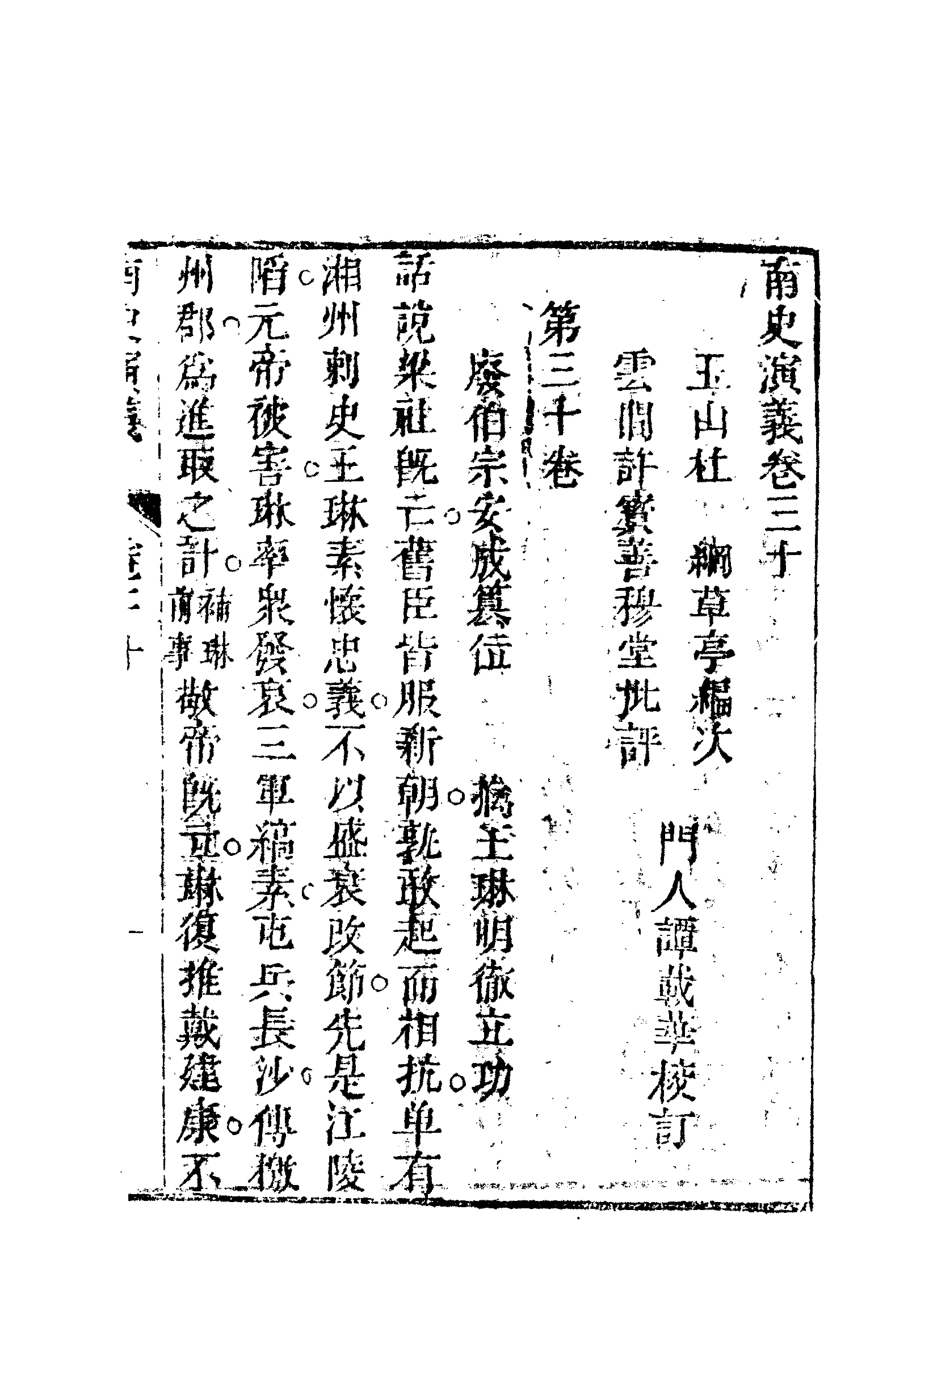 南史演義卷三十
玉山杜 綱草亭編次
雲間許寶善穆堂批評
門人譚載華校訂
第三十卷
廢伯宗安成簒位 擒王琳明徹立功
話說梁社旣亡舊臣皆服新朝孰敢起而相抗单有
湘州刺史王琳素懷忠義不以盛衰改節先是江陵
陷元帝被害琳率衆發哀三軍縞素屯兵長沙傳檄
州郡爲進取之計補琳前事敬帝旣立琳復推戴建康不
南史演義 卷三十 一